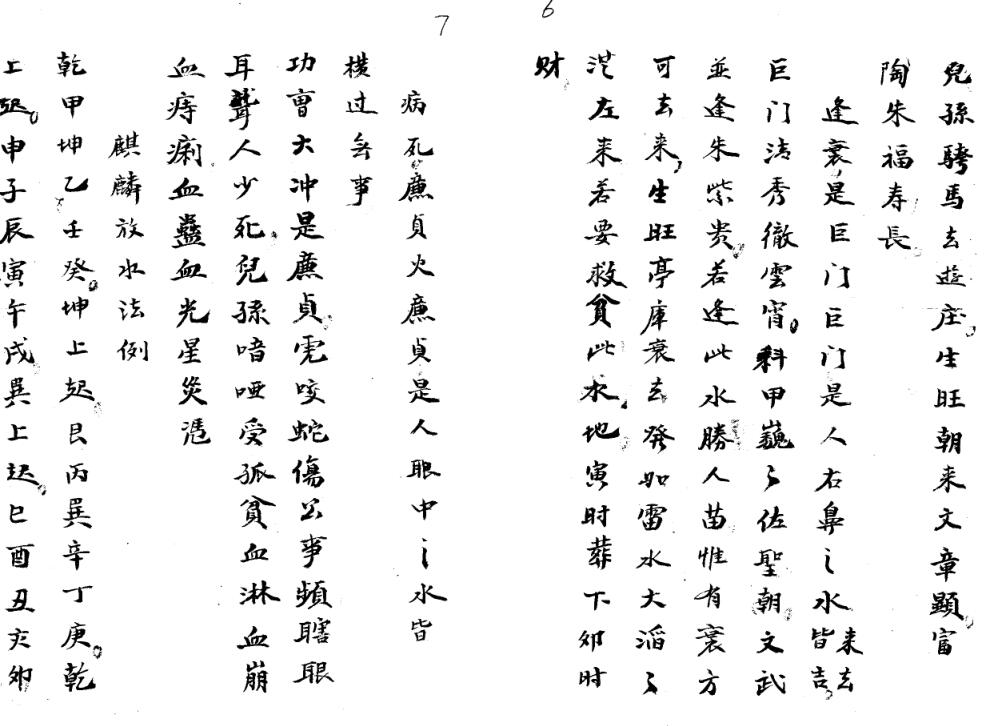 6
兒孫騁馬去遊庄生旺朝来文章顯富
陶朱福寿長
逢衰是巨门巨门是人右鼻之水皆来去吉
巨门清秀徹雲霄科甲巍々佐聖朝文武
並逢朱紫贵若逢此水勝人苗惟有衰方
可去来生旺亭庫衰去發如雷水大滔々
従左来若要救貧此水地寅时葬下夘时
财
7
病死廉貞火廉貞是人眼中之水皆
横过無事
功曹大冲是廉貞虎咬蛇傷公事頻瞎眼
耳聾人少死兒孫喑哑受孤貧血淋血崩
血痔痢血蠱血光星災凴
麒麟放水法例
乾甲坤乙壬癸坤上起艮丙巽辛丁庚乾
上起申子辰寅午戌巽上起巳酉丑亥夘